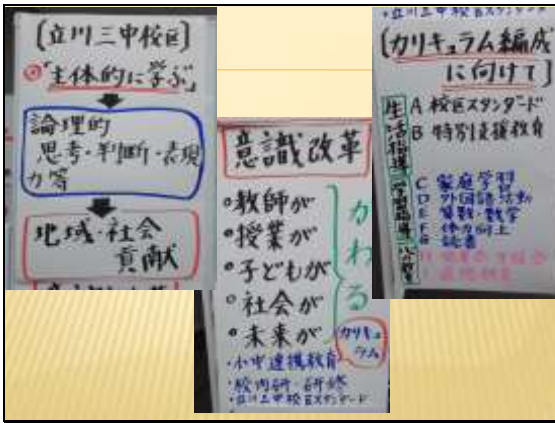 〔立川三中校区〕
◎「主体的に学ぶ」
論理的
思考・判断・表現
力等
地域・社会
貢献
意識改革
・教師が
・授業が
・子どもが
・社会が
・未来が
かわる
カリキュラム
・小中連携教育
・校内研・研修
・立川三中校区スタンダード
・立川三中校区スタンダード
〔カリキュラム編成
に向けて〕
生活指導
A 校区スタンダード
B 特別支援教育
学習指導
C 家庭学習
D 外国語活動
E 算数・数学
F 体力向上
G 読書